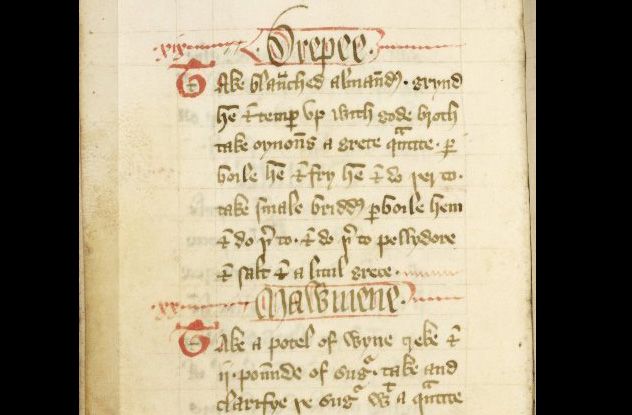 xix Drepee.
Take blaunched almand. grynd
he & temp up with gode broth
take oynons a grete qantite. p
boile he & fry he & do þer to.
take smale bridd pboile hem
& do þ to. & do þ to pellydore
& salt & a litul grece.
xx Mawmene.
Take a potel of wyne greke &
ii. pounde of sug. take and
clarifye þe sug w a qantite